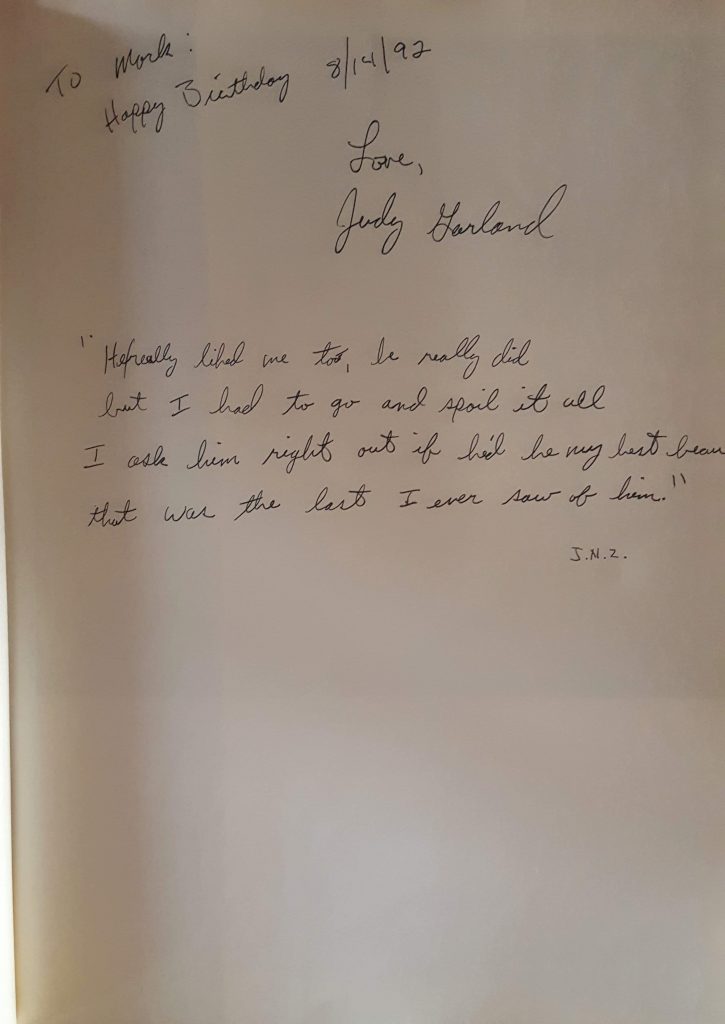 To Mark:
Happy Birthday 8/14/92
Love,
Judy Garland
"He really liked me too, he really did
but I had to go and spoil it all
I ask him right out if he'd be my best beau
that was the last I ever saw of him."
J.N.Z.